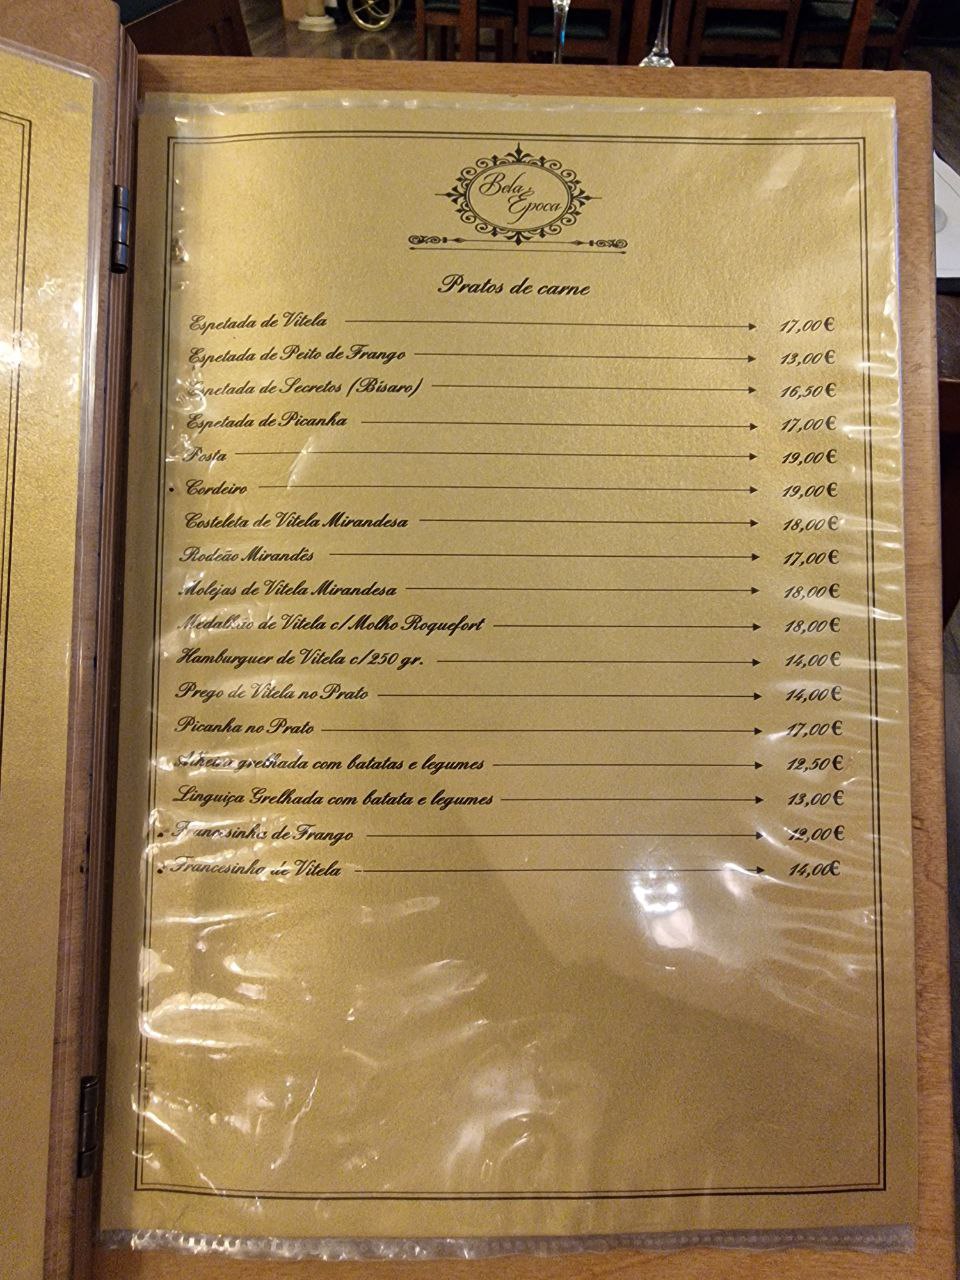 Bela
Epoca
Pratos de carne
Espetada de Vitela 17,00€
Espetada de Peito de Frango 13,00€
Espetada de Secretos (Bísaro) 16,50€
Espetada de Picanha 17,00€
Posta 19,00€
• Cordeiro 19,00€
Costeleta de Vitela Mirandesa 18,00€
Rodeão Mirandês 17,00€
Molejas de Vitela Mirandesa 18,00€
Medalhão de Vitela c/Molho Roquefort 18,00€
Hamburguer de Vitela c/250 gr. 14,00€
Prego de Vitela no Prato 14,00€
Picanha no Prato 17,00€
Alheira grelhada com batatas e legumes 12,50€
Linguiça Grelhada com batata e legumes 13,00€
• Francesinha de Frango 12,00€
• Francesinha de Vitela 14,00€